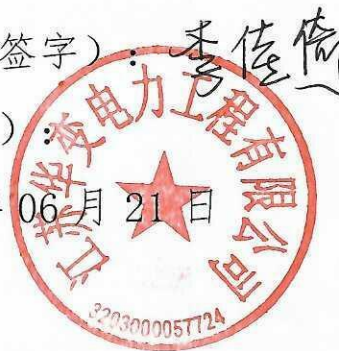 签字）：李佳倩
）：
06 月 21 日
江苏华变电力工程有限公司
3203000057724